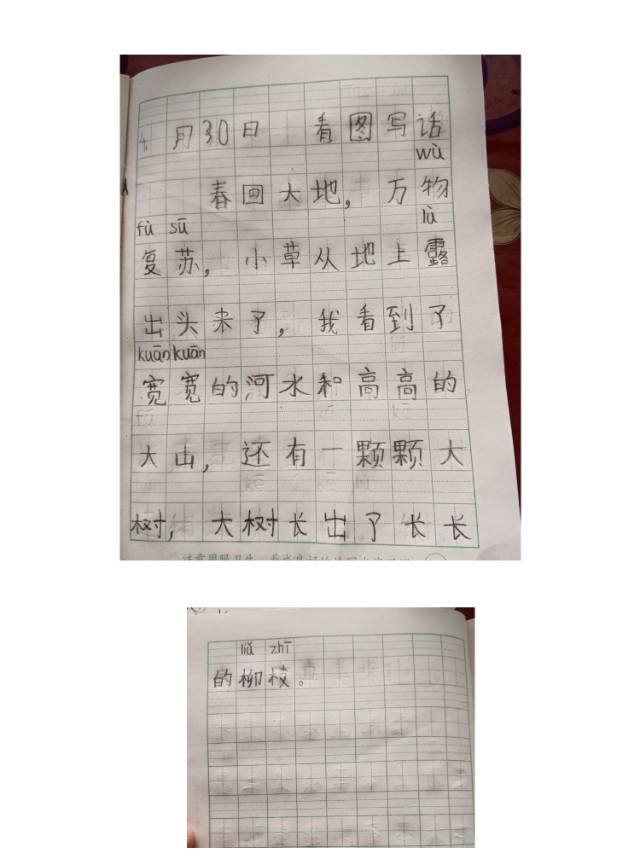 4月30日 看图写话
wù
春回大地，万物
fù sū lù
复苏，小草从地上露
出头来了，我看到了
kuān kuān
宽宽的河水和高高的
大山，还有一颗颗大
树，大树长出了长长
liǔ zhī
的柳枝。